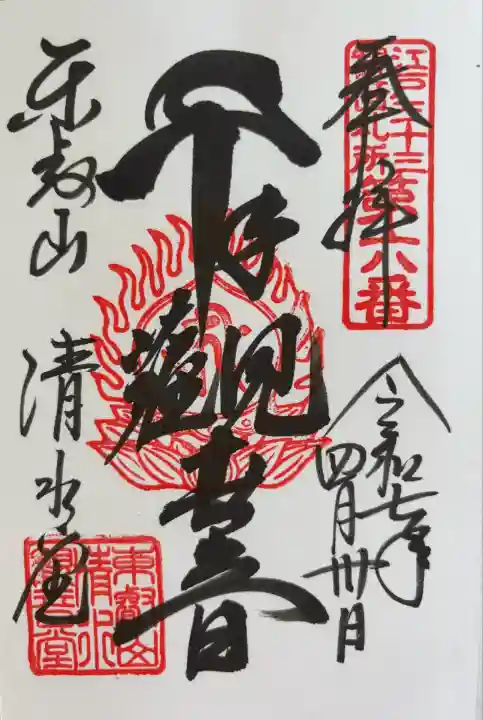 奉拝
江戸三十三
観音札所
第六番
令和七年
四月卅日
千手觀世音
東叡山 清水堂
東叡山
清水
観音堂